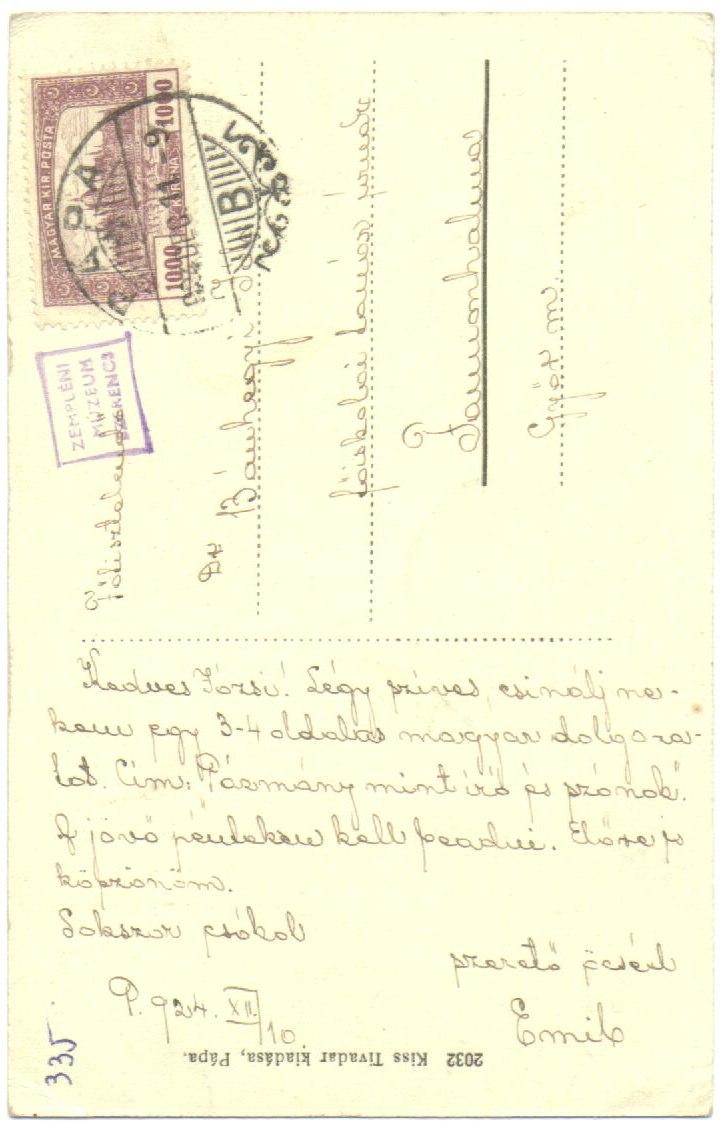 MAGYAR KIR. POSTA
1000 KORONA 1000
PÁPA
924 DEC 11 - 9
B
ZEMPLÉNI
MÚZEUM
SZERENCS
Főtisztelendő
Dr Bánhegyi Jó
főiskolai tanár úrnak
P
Pannonhalma
Győr m.
Kedves Józsi! Légy szíves, csinálj ne-
kem egy 3-4 oldalas magyar dolgoza-
tot. Cím: „Pázmány mint író és szónok".
A jövő pénteken kell beadni. Előre is
köszönöm.
Sokszor csókol
szerető öcséd
Emil
P. 924. XII./10
2032 Kiss Tivadar kiadása, Pápa.
335.